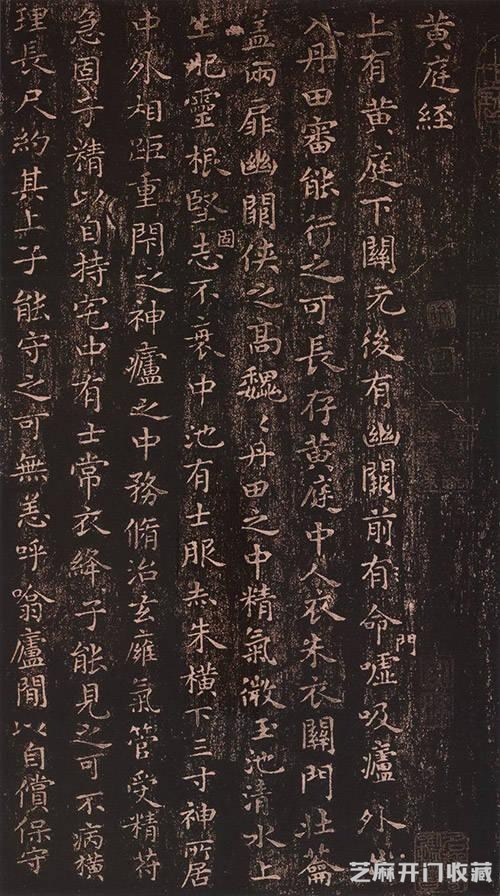 黃庭經
上有黃庭下關元後有幽闕前有命門噓吸廬外出
入丹田審能行之可長存黃庭中人衣朱衣關門壯籥
蓋兩扉幽闕俠之高魏〻丹田之中精氣微玉池清水上
生肥靈根堅固志不衰中池有士服赤朱橫下三寸神所居
中外相距重閇之神廬之中務脩治玄廱氣管受精符
急固子精以自持宅中有士常衣絳子能見之可不病橫
理長尺約其上子能守之可無恙呼噏廬間以自償保守
芝麻开门收藏